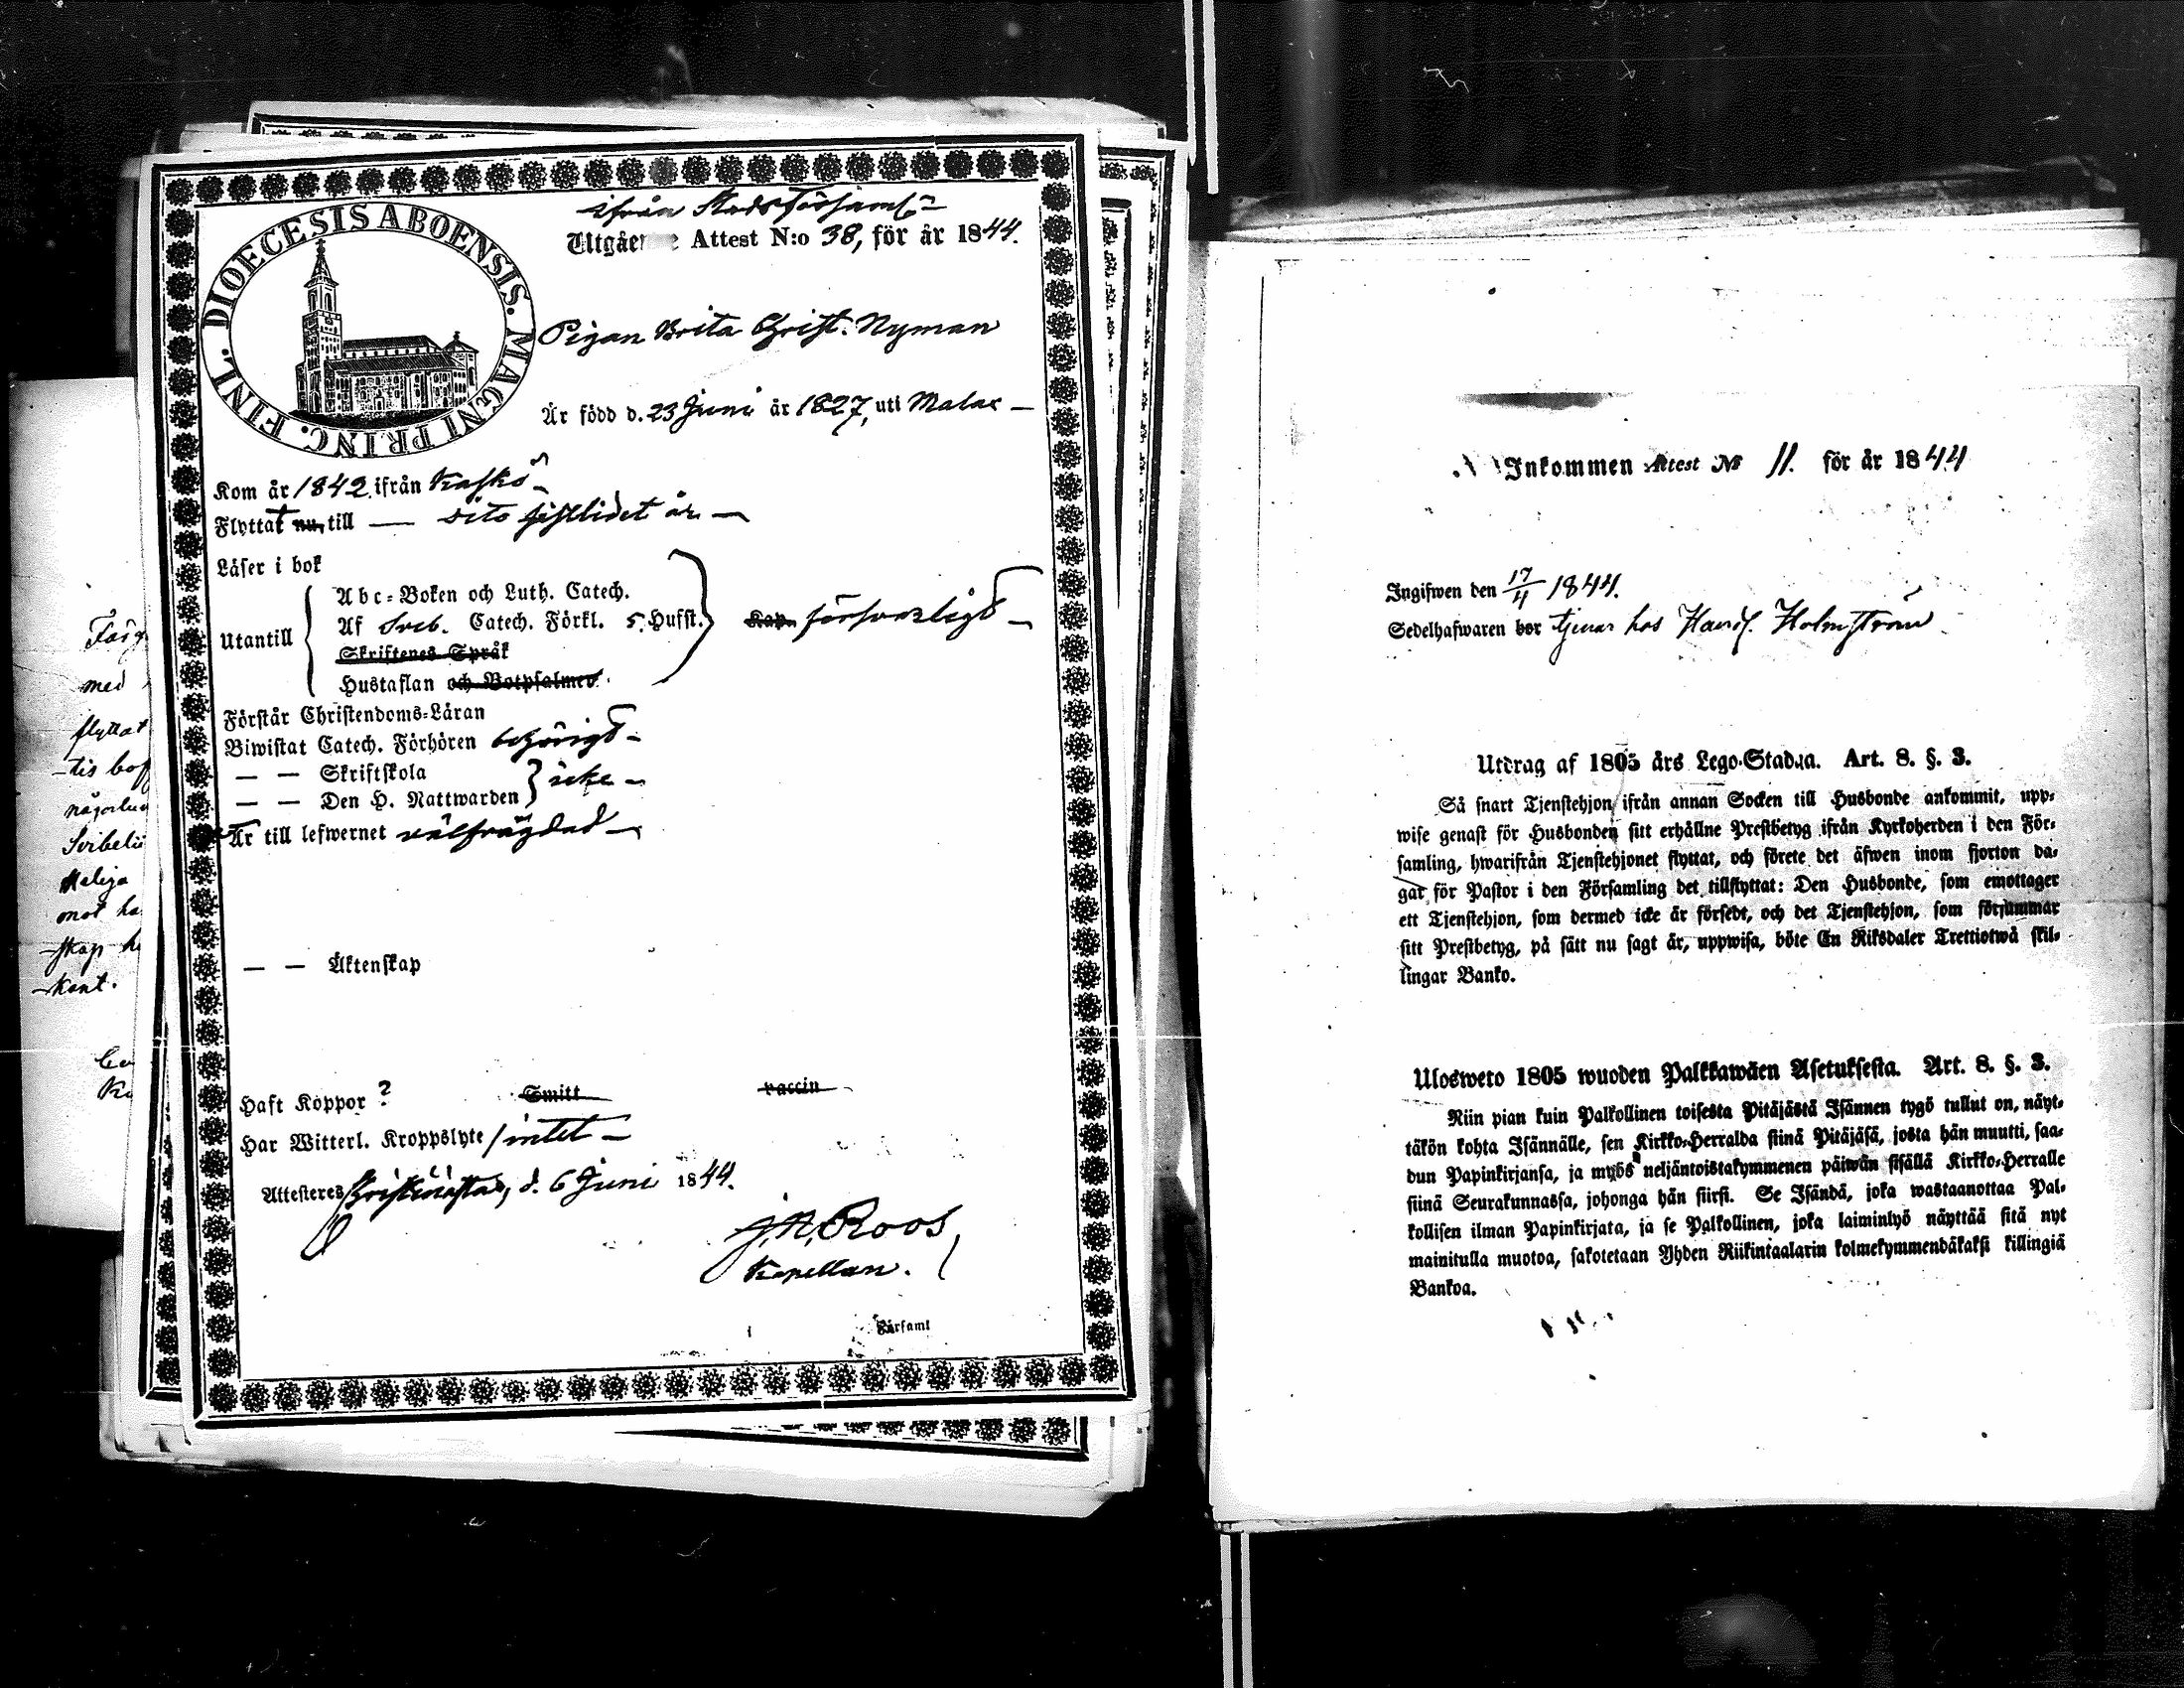 ifrån Stadsförsaml:n
Utgåe e Attest N:o 38, för år 1844.
DIOECESIS ABOENSIS. MAGNI PRINC. FINL.
Pigan Brita Christ. Nyman
Är född d. 23 Juni år 1827, uti Malax —
Kom år 1842 ifrån Kaskö —
Flyttat nu, till — dito sistlidet år. —
Läser i bok
Abc-Boken och Luth. Catech.
Utantill
Af Sveb. Catech. Förkl. 5. Hufst.
försvarligt —
Skriftenes Språk
Hustaflan och Botpsalmer.
Förstår Christendoms-Läran
Biwistat Catech. Förhören behörigt —
— — Skriftskola
— — Den H. Nattwarden } icke —
Är till lefwernet välfrägdad —
— — Äktenskap
Haft Koppor ? Smitt vaccin
Har Witterl. Kroppslyte / intet —
Attesteres Christinestad, d. 6 Juni 1844.
J. N. Roos,
Kapellan.
Församl
Färg
med
flyttat
-tis bof
någorlun
Heliga
emot ha
-skap h
-kant.
Inkommen Attest No 11. för år 1844
Ingifwen den 17/4 1844.
Sedelhafwaren bor tjenar hos Handl. Holmström
Utdrag af 1805 års Lego-Stadga. Art. 8. §. 3.
Så snart Tjenstehjon ifrån annan Socken till Husbonde ankommit, upp-
wise genast för Husbonden sitt erhållne Prestbetyg ifrån Kyrkoherden i den För-
samling, hwarifrån Tjenstehjonet flyttat, och förete det äfwen inom fjorton da-
gar för Pastor i den Församling det tillflyttat: Den Husbonde, som emottager
ett Tjenstehjon, som dermed icke är försedt, och det Tjenstehjon, som försummar
sitt Prestbetyg, på sätt nu sagt är, uppwisa, böte En Riksdaler Trettiotwå skil-
lingar Banko.
Ulosweto 1805 wuoden Palkkawäen Asetuksesta. Art. 8. §. 3.
Niin pian kuin Palkollinen toisesta Pitäjästä Isännen tygö tullut on, näyt-
täkön kohta Isännälle, sen Kirkko-Herralda siinä Pitäjäsä, josta hän muutti, saa-
dun Papinkirjansa, ja myös neljäntoistakymmenen päiwän sisällä Kirkko-Herralle
siinä Seurakunnassa, johonga hän siirsi. Se Isändä, joka wastaanottaa Pal-
kollisen ilman Papinkirjata, ja se Palkollinen, joka laiminlyö näyttää sitä nyt
mainitulla muotoa, sakotetaan Yhden Riikintaalarin kolmekymmendäkaksi killingiä
Bankoa.